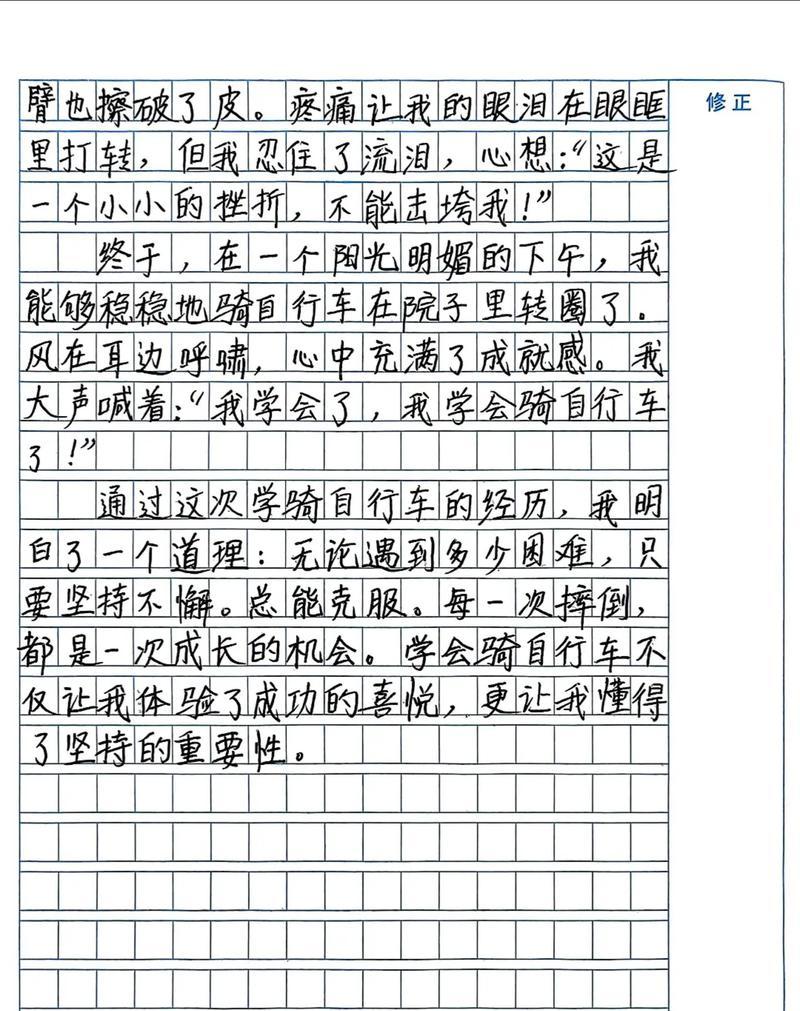 修正
臂也擦破了皮。疼痛让我的眼泪在眼眶
里打转，但我忍住了流泪，心想：“这是
一个小小的挫折，不能击垮我！”
终于，在一个阳光明媚的下午，我
能够稳稳地骑自行车在院子里转圈了。
风在耳边呼啸，心中充满了成就感。我
大声喊着：“我学会了，我学会骑自行车
了！”
通过这次学骑自行车的经历，我明
白了一个道理：无论遇到多少困难，只
要坚持不懈。总能克服。每一次摔倒，
都是一次成长的机会。学会骑自行车不
仅让我体验了成功的喜悦，更让我懂得
了坚持的重要性。